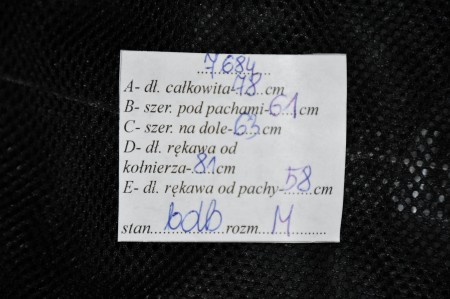 7684
A- dł. całkowita-78 cm
B- szer. pod pachami-61 cm
C- szer. na dole-63 cm
D- dł. rękawa od
kołnierza-81 cm
E- dł. rękawa od pachy-58 cm
stan bdb rozm. M